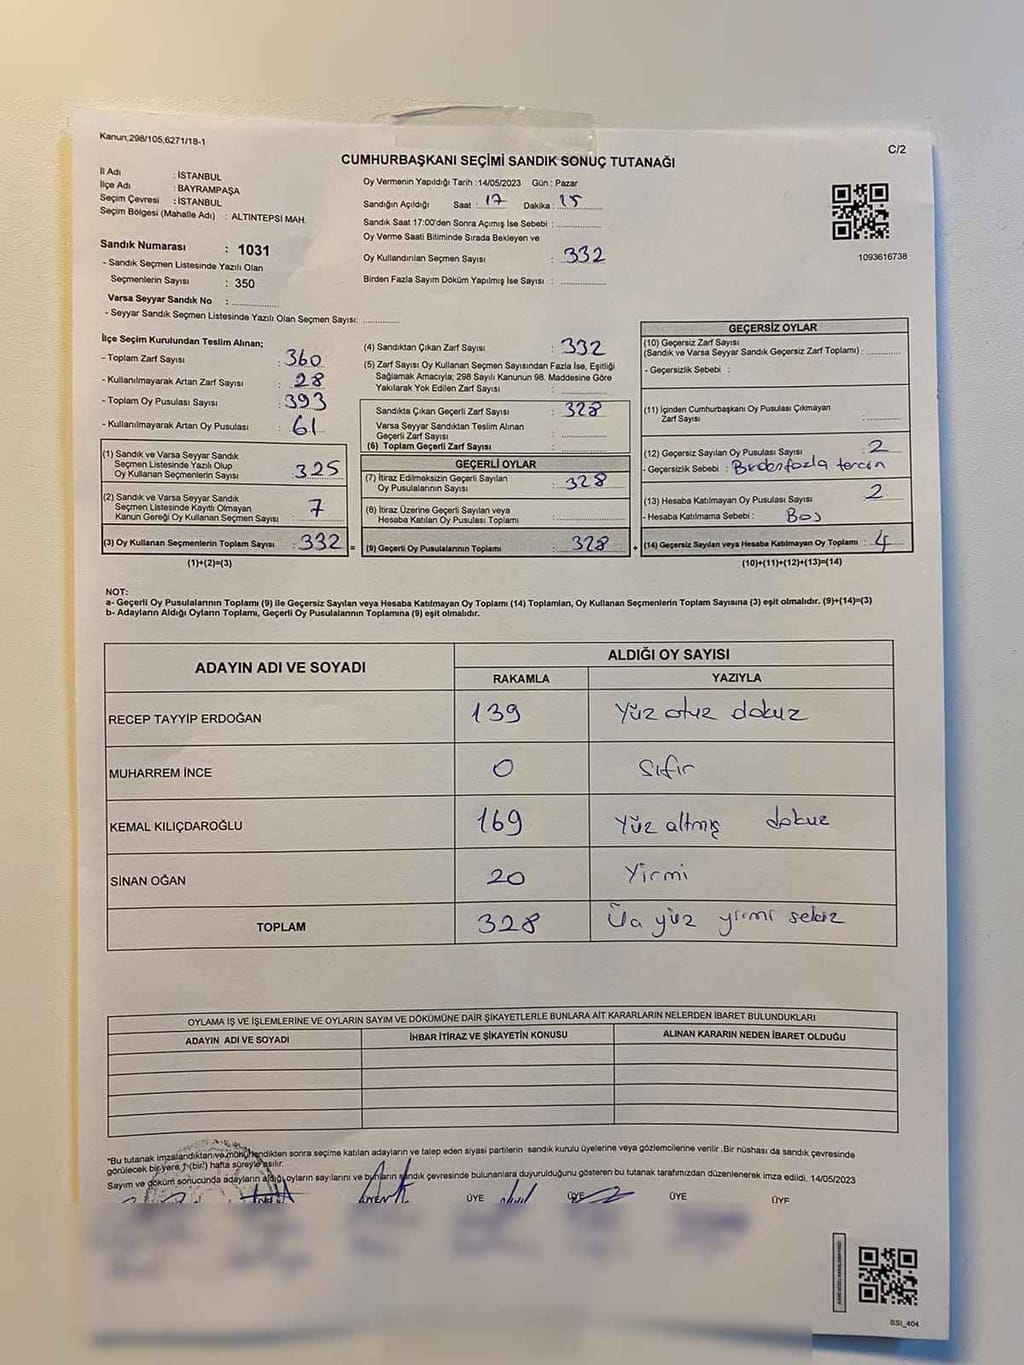 Kanun;298/105,6271/18-1
C/2
CUMHURBAŞKANI SEÇİMİ SANDIK SONUÇ TUTANAĞI
İl Adı : İSTANBUL
İlçe Adı : BAYRAMPAŞA
Seçim Çevresi : İSTANBUL
Seçim Bölgesi (Mahalle Adı) : ALTINTEPSİ MAH.
Sandık Numarası : 1031
- Sandık Seçmen Listesinde Yazılı Olan
Seçmenlerin Sayısı : 350
Varsa Seyyar Sandık No :
- Seyyar Sandık Seçmen Listesinde Yazılı Olan Seçmen Sayısı:
Oy Vermenin Yapıldığı Tarih : 14/05/2023 Gün : Pazar
Sandığın Açıldığı Saat : 17 Dakika : 15
Sandık Saat 17:00'den Sonra Açımış İse Sebebi :
Oy Verme Saati Bitiminde Sırada Bekleyen ve
Oy Kullandırılan Seçmen Sayısı : 332
Birden Fazla Sayım Döküm Yapılmış İse Sayısı :
1093616738
İlçe Seçim Kurulundan Teslim Alınan;
- Toplam Zarf Sayısı : 360
- Kullanılmayarak Artan Zarf Sayısı : 28
- Toplam Oy Pusulası Sayısı : 393
- Kullanılmayarak Artan Oy Pusulası : 61
(1) Sandık ve Varsa Seyyar Sandık
Seçmen Listesinde Yazılı Olup
Oy Kullanan Seçmenlerin Sayısı : 325
(2) Sandık ve Varsa Seyyar Sandık
Seçmen Listesinde Kayıtlı Olmayan
Kanun Gereği Oy Kullanan Seçmen Sayısı : 7
(3) Oy Kullanan Seçmenlerin Toplam Sayısı : 332 =
(1)+(2)=(3)
(4) Sandıktan Çıkan Zarf Sayısı : 332
(5) Zarf Sayısı Oy Kullanan Seçmen Sayısından Fazla İse, Eşitliği
Sağlamak Amacıyla; 298 Sayılı Kanunun 98. Maddesine Göre
Yakılarak Yok Edilen Zarf Sayısı :
Sandıkta Çıkan Geçerli Zarf Sayısı : 328
Varsa Seyyar Sandıktan Teslim Alınan
Geçerli Zarf Sayısı :
(6) Toplam Geçerli Zarf Sayısı :
GEÇERLİ OYLAR
(7) İtiraz Edilmeksizin Geçerli Sayılan
Oy Pusulalarının Sayısı : 328
(8) İtiraz Üzerine Geçerli Sayılan veya
Hesaba Katılan Oy Pusulası Toplamı :
(9) Geçerli Oy Pusulalarının Toplamı : 328 +
GEÇERSİZ OYLAR
(10) Geçersiz Zarf Sayısı
(Sandık ve Varsa Seyyar Sandık Geçersiz Zarf Toplamı) :
- Geçersizlik Sebebi :
(11) İçinden Cumhurbaşkanı Oy Pusulası Çıkmayan
Zarf Sayısı :
(12) Geçersiz Sayılan Oy Pusulası Sayısı : 2
- Geçersizlik Sebebi : Birden fazla tercih
(13) Hesaba Katılmayan Oy Pusulası Sayısı 2
- Hesaba Katılmama Sebebi : Boş
(14) Geçersiz Sayılan veya Hesaba Katılmayan Oy Toplamı : 4
(10)+(11)+(12)+(13)=(14)
NOT:
a- Geçerli Oy Pusulalarının Toplamı (9) ile Geçersiz Sayılan veya Hesaba Katılmayan Oy Toplamı (14) Toplamları, Oy Kullanan Seçmenlerin Toplam Sayısına (3) eşit olmalıdır. (9)+(14)=(3)
b- Adayların Aldığı Oyların Toplamı, Geçerli Oy Pusulalarının Toplamına (9) eşit olmalıdır.
ADAYIN ADI VE SOYADI ALDIĞI OY SAYISI
RAKAMLA YAZIYLA
RECEP TAYYİP ERDOĞAN 139 Yüz otuz dokuz
MUHARREM İNCE 0 Sıfır
KEMAL KILIÇDAROĞLU 169 Yüz altmış dokuz
SİNAN OĞAN 20 Yirmi
TOPLAM 328 Üç yüz yirmi sekiz
OYLAMA İŞ VE İŞLEMLERİNE VE OYLARIN SAYIM VE DÖKÜMÜNE DAİR ŞİKAYETLERLE BUNLARA AİT KARARLARIN NELERDEN İBARET BULUNDUKLARI
ADAYIN ADI VE SOYADI İHBAR İTİRAZ VE ŞİKAYETİN KONUSU ALINAN KARARIN NEDEN İBARET OLDUĞU
*Bu tutanak imzalandıktan ve mühürlendikten sonra seçime katılan adayların ve talep eden siyasi partilerin sandık kurulu üyelerine veya gözlemcilerine verilir .Bir nüshası da sandık çevresinde
görülecek bir yere 1 (bir) hafta süreyle asılır.
Sayım ve döküm sonucunda adayların aldığı oyların sayılarını ve bunların sandık çevresinde bulunanlara duyurulduğunu gösteren bu tutanak tarafımızdan düzenlenerek imza edildi. 14/05/2023
ÜYE ÜYE ÜYE ÜYE
SSI_404